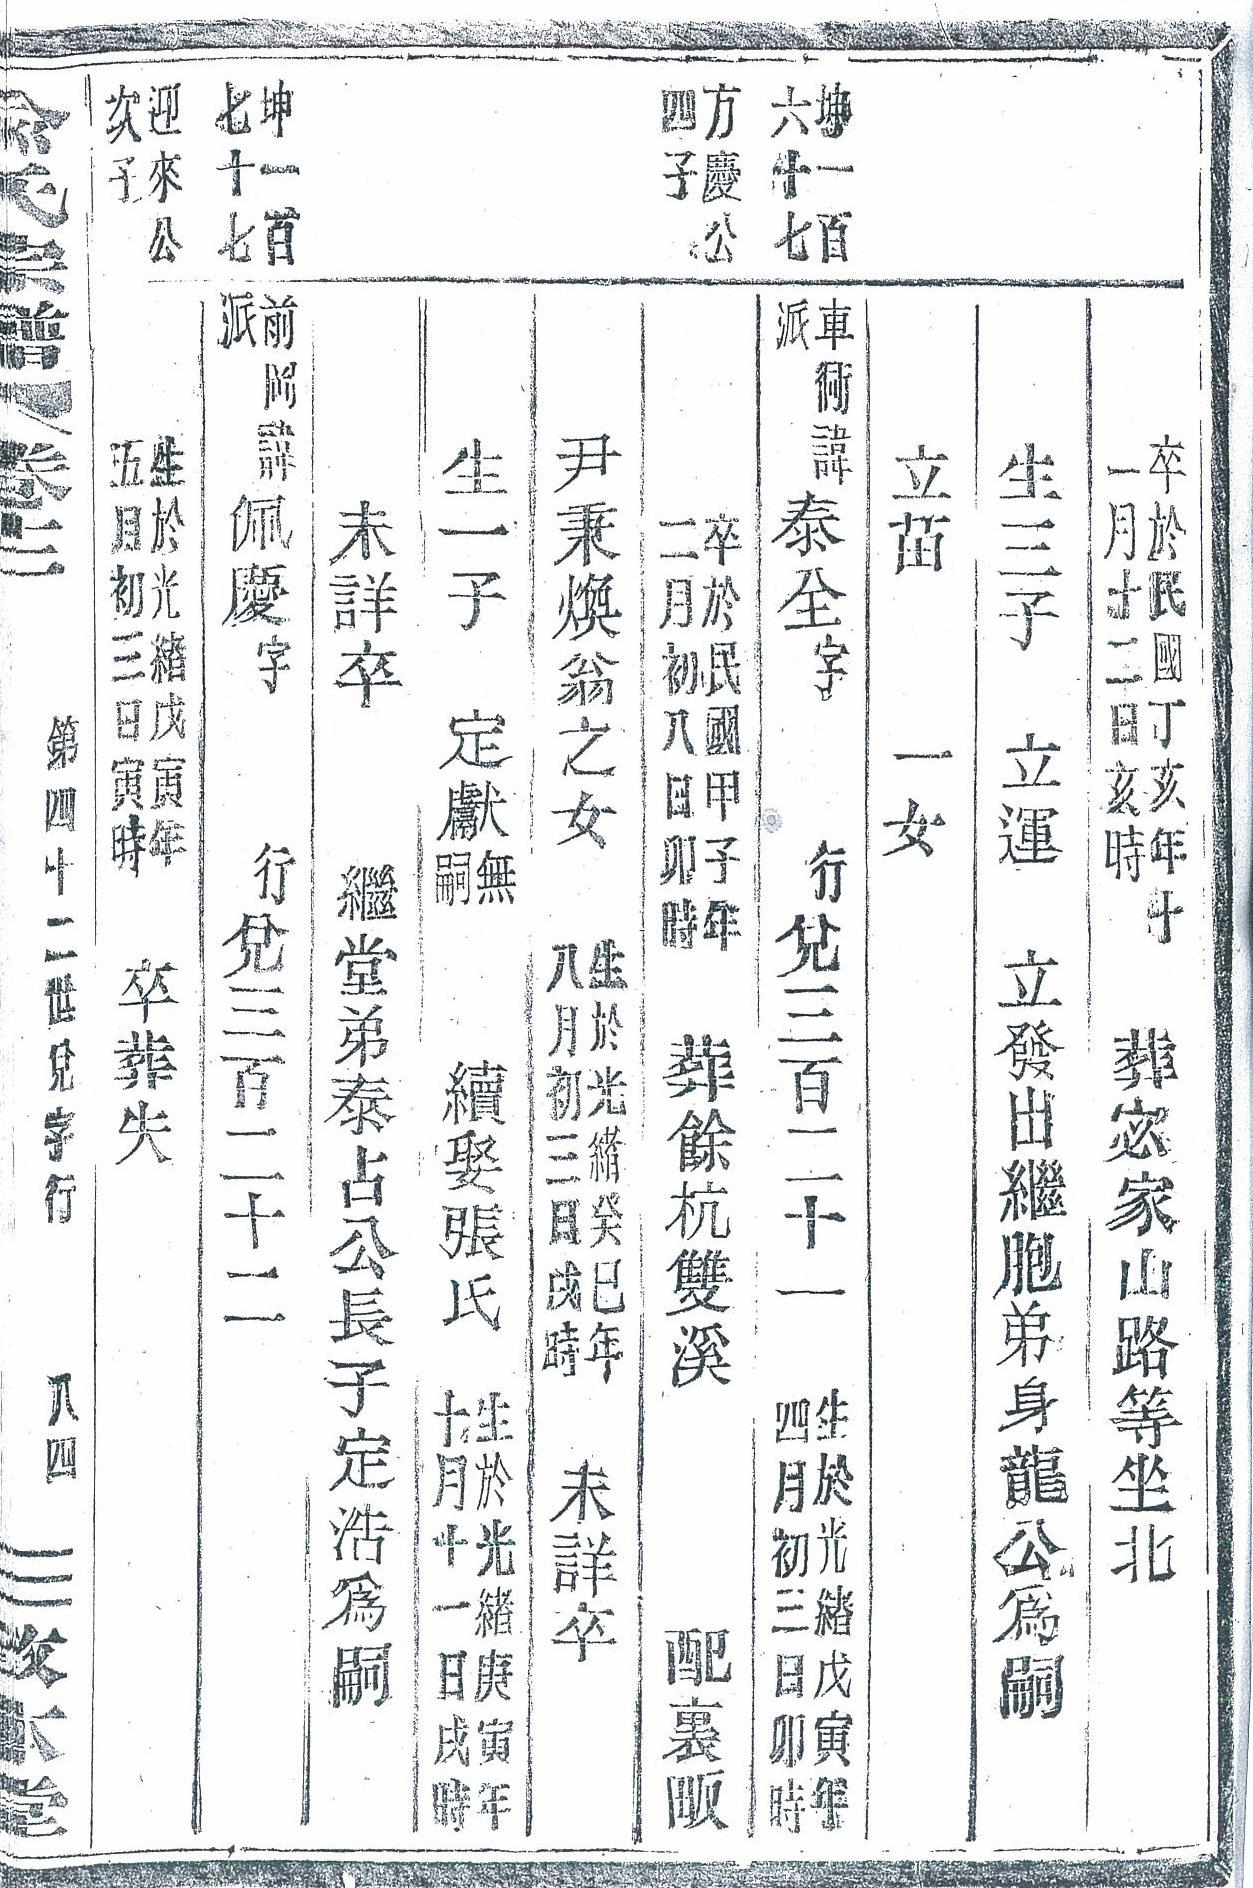 卒於民國丁亥年十
一月十二日亥時
葬宓家山路等坐北
生三子 立運 立發出繼胞弟身龍公爲嗣
立茁 一女
坤一百
六十七
車衖諱
派
泰全字 行兌三百二十一
生於光緒戊寅年
四月初三日卯時
方慶公
四子
卒於民國甲子年
二月初八日卯時
葬餘杭雙溪 配裏畈
尹秉煥翁之女
生於光緒癸巳年
八月初三日戌時
未詳卒
生一子 定獻
無
嗣
續娶張氏
生於光緒庚寅年
十月十一日戌時
未詳卒 繼堂弟泰占公長子定浩爲嗣
坤一百
七十七
前岡諱
派
佩慶字 行兌三百二十二
迎來公
次子
生於光緒戊寅年
五月初三日寅時
卒葬失
氏宗譜 卷二
第四十二世兌字行
八四
三敬堂